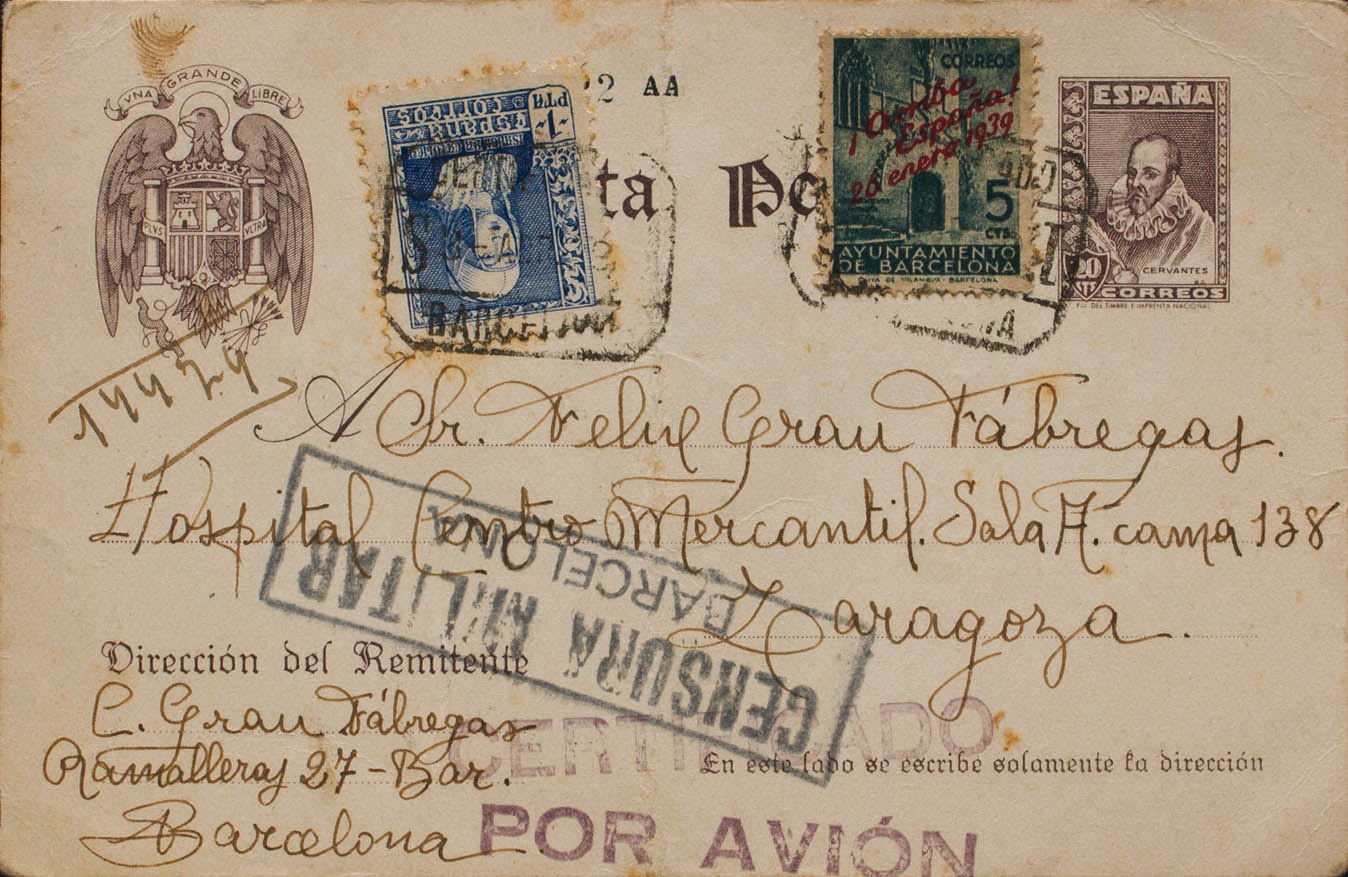 UNA GRANDE LIBRE
PLVS VLTRA
2 AA
ta Po
-1- PTA
ESPAÑA
CORREOS
BARCELONA
CORREOS
¡Arriba España!
26 enero 1939
5
CTS.
AYUNTAMIENTO
DE BARCELONA
OLIVA DE VILANOVA - BARCELONA
ESPAÑA
CERVANTES
20
CTS
CORREOS
FCA. DEL TIMBRE E IMPRENTA NACIONAL
A Sr. Felix Grau Fábregas.
Hospital Centro Mercantil. Sala A. cama 138
Zaragoza.
CENSURA MILITAR
BARCELONA
Dirección del Remitente
C. Grau Fábregas
Ramalleras 27 - Bar.
Barcelona
CERTIFICADO
En este lado se escribe solamente la dirección
POR AVIÓN